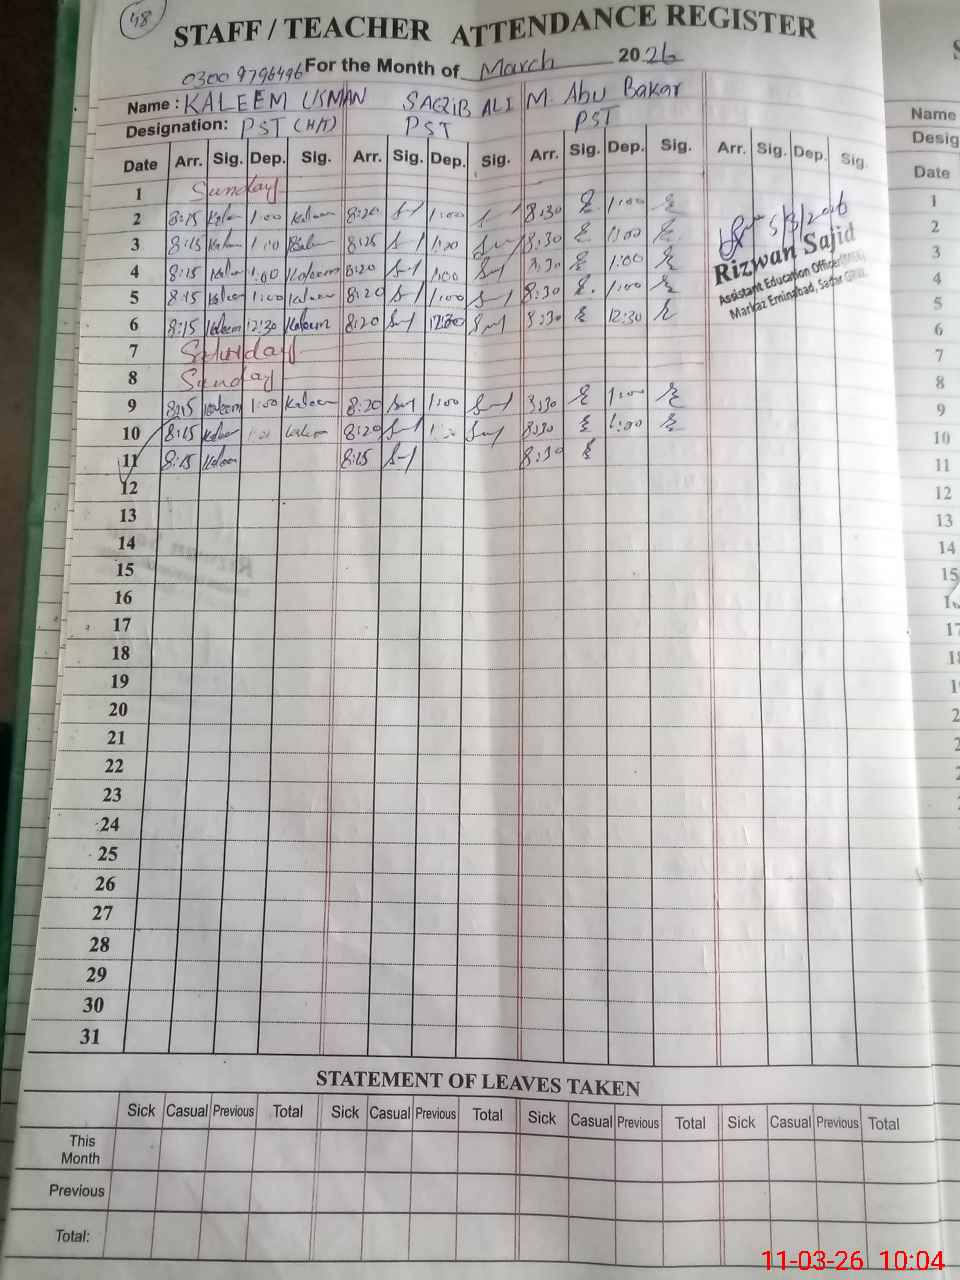 48
STAFF / TEACHER ATTENDANCE REGISTER
0300 9796496 For the Month of March 2026
Name : KALEEM USMAN SAQIB ALI M. Abu Bakar
Designation: PST (H/T) PST PST
Date Arr. Sig. Dep. Sig. Arr. Sig. Dep. Sig. Arr. Sig. Dep. Sig. Arr. Sig. Dep. Sig.
1 Sunday
2 8:15 Kaleem 1:00 Kaleem 8:20 1:00 8:30 1:00
3 8:15 Kaleem 1:00 8:25 1:00 8:30 1:00
4 8:15 Kaleem 1:00 Kaleem 8:20 1:00 8:30 1:00
5 8:15 Kaleem 1:00 Kaleem 8:20 1:00 8:30 1:00
6 8:15 Kaleem 12:30 Kaleem 8:20 12:30 8:30 12:30
7 Saturday
8 Sunday
9 8:15 Kaleem 1:00 Kaleem 8:20 1:00 8:30 1:00
10 8:15 Kaleem 8:20 8:30 1:00
11 8:15 Kaleem 8:15 8:30
12
13
14
15
16
17
18
19
20
21
22
23
24
25
26
27
28
29
30
31
5/3/2026
Rizwan Sajid
Assistant Education Officer
Markaz Eminabad, Sadar
STATEMENT OF LEAVES TAKEN
Sick Casual Previous Total Sick Casual Previous Total Sick Casual Previous Total Sick Casual Previous Total
This
Month
Previous
Total:
Name
Desig
Date
1
2
3
4
5
6
7
8
9
10
11
12
13
14
15
11-03-26 10:04